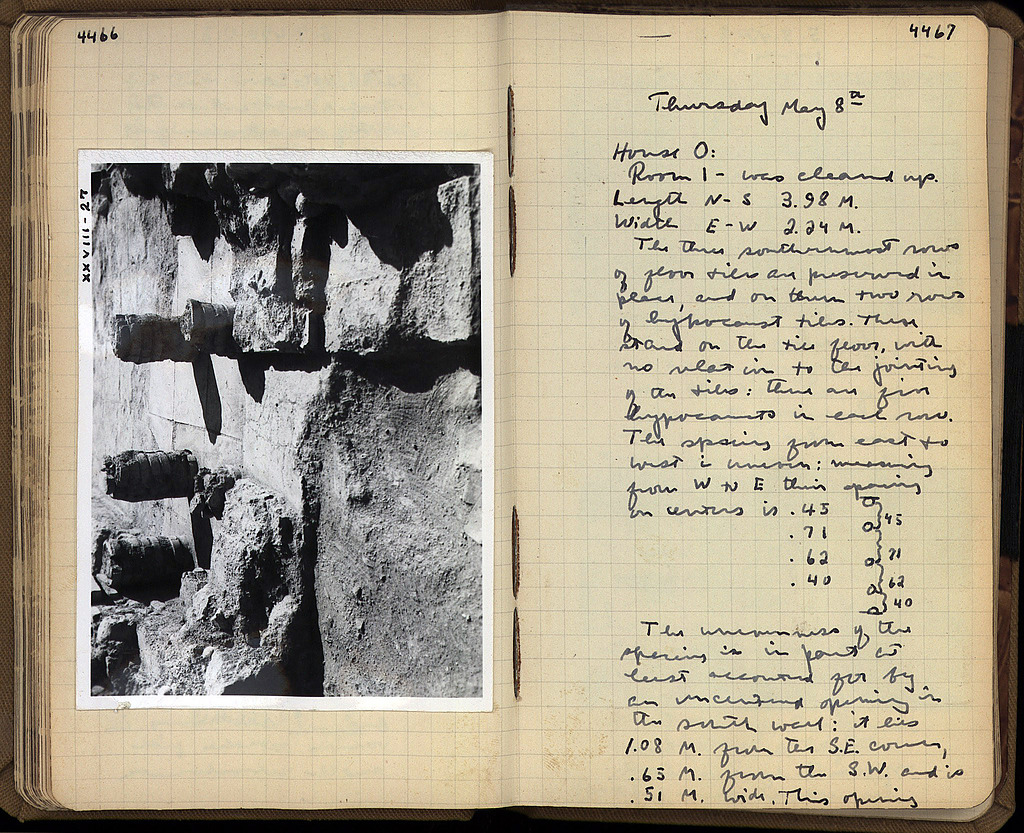 4466
XXVIII-27
4467
Thursday May 8th
House O:
Room 1 - was cleaned up.
Length N-S 3.98 M.
Width E-W 2.24 M.
The three southernmost rows
of floor tiles are preserved in
place, and on them two rows
of hypocaust tiles. These
stand on the tile floor, with
no relation to the jointing
of the tiles: there are five
hypocausts in each row.
The spacing from east to
west is uneven: measuring
from W to E their spacing
on centers is .45
.71
.62
.40
45
71
62
40
The unevenness of the
spacing is in part at
least accounted for by
an uncertain opening in
the south wall: it lies
1.08 M. from the S.E. corner,
.65 M. from the S.W. and is
.51 M. wide. This opening